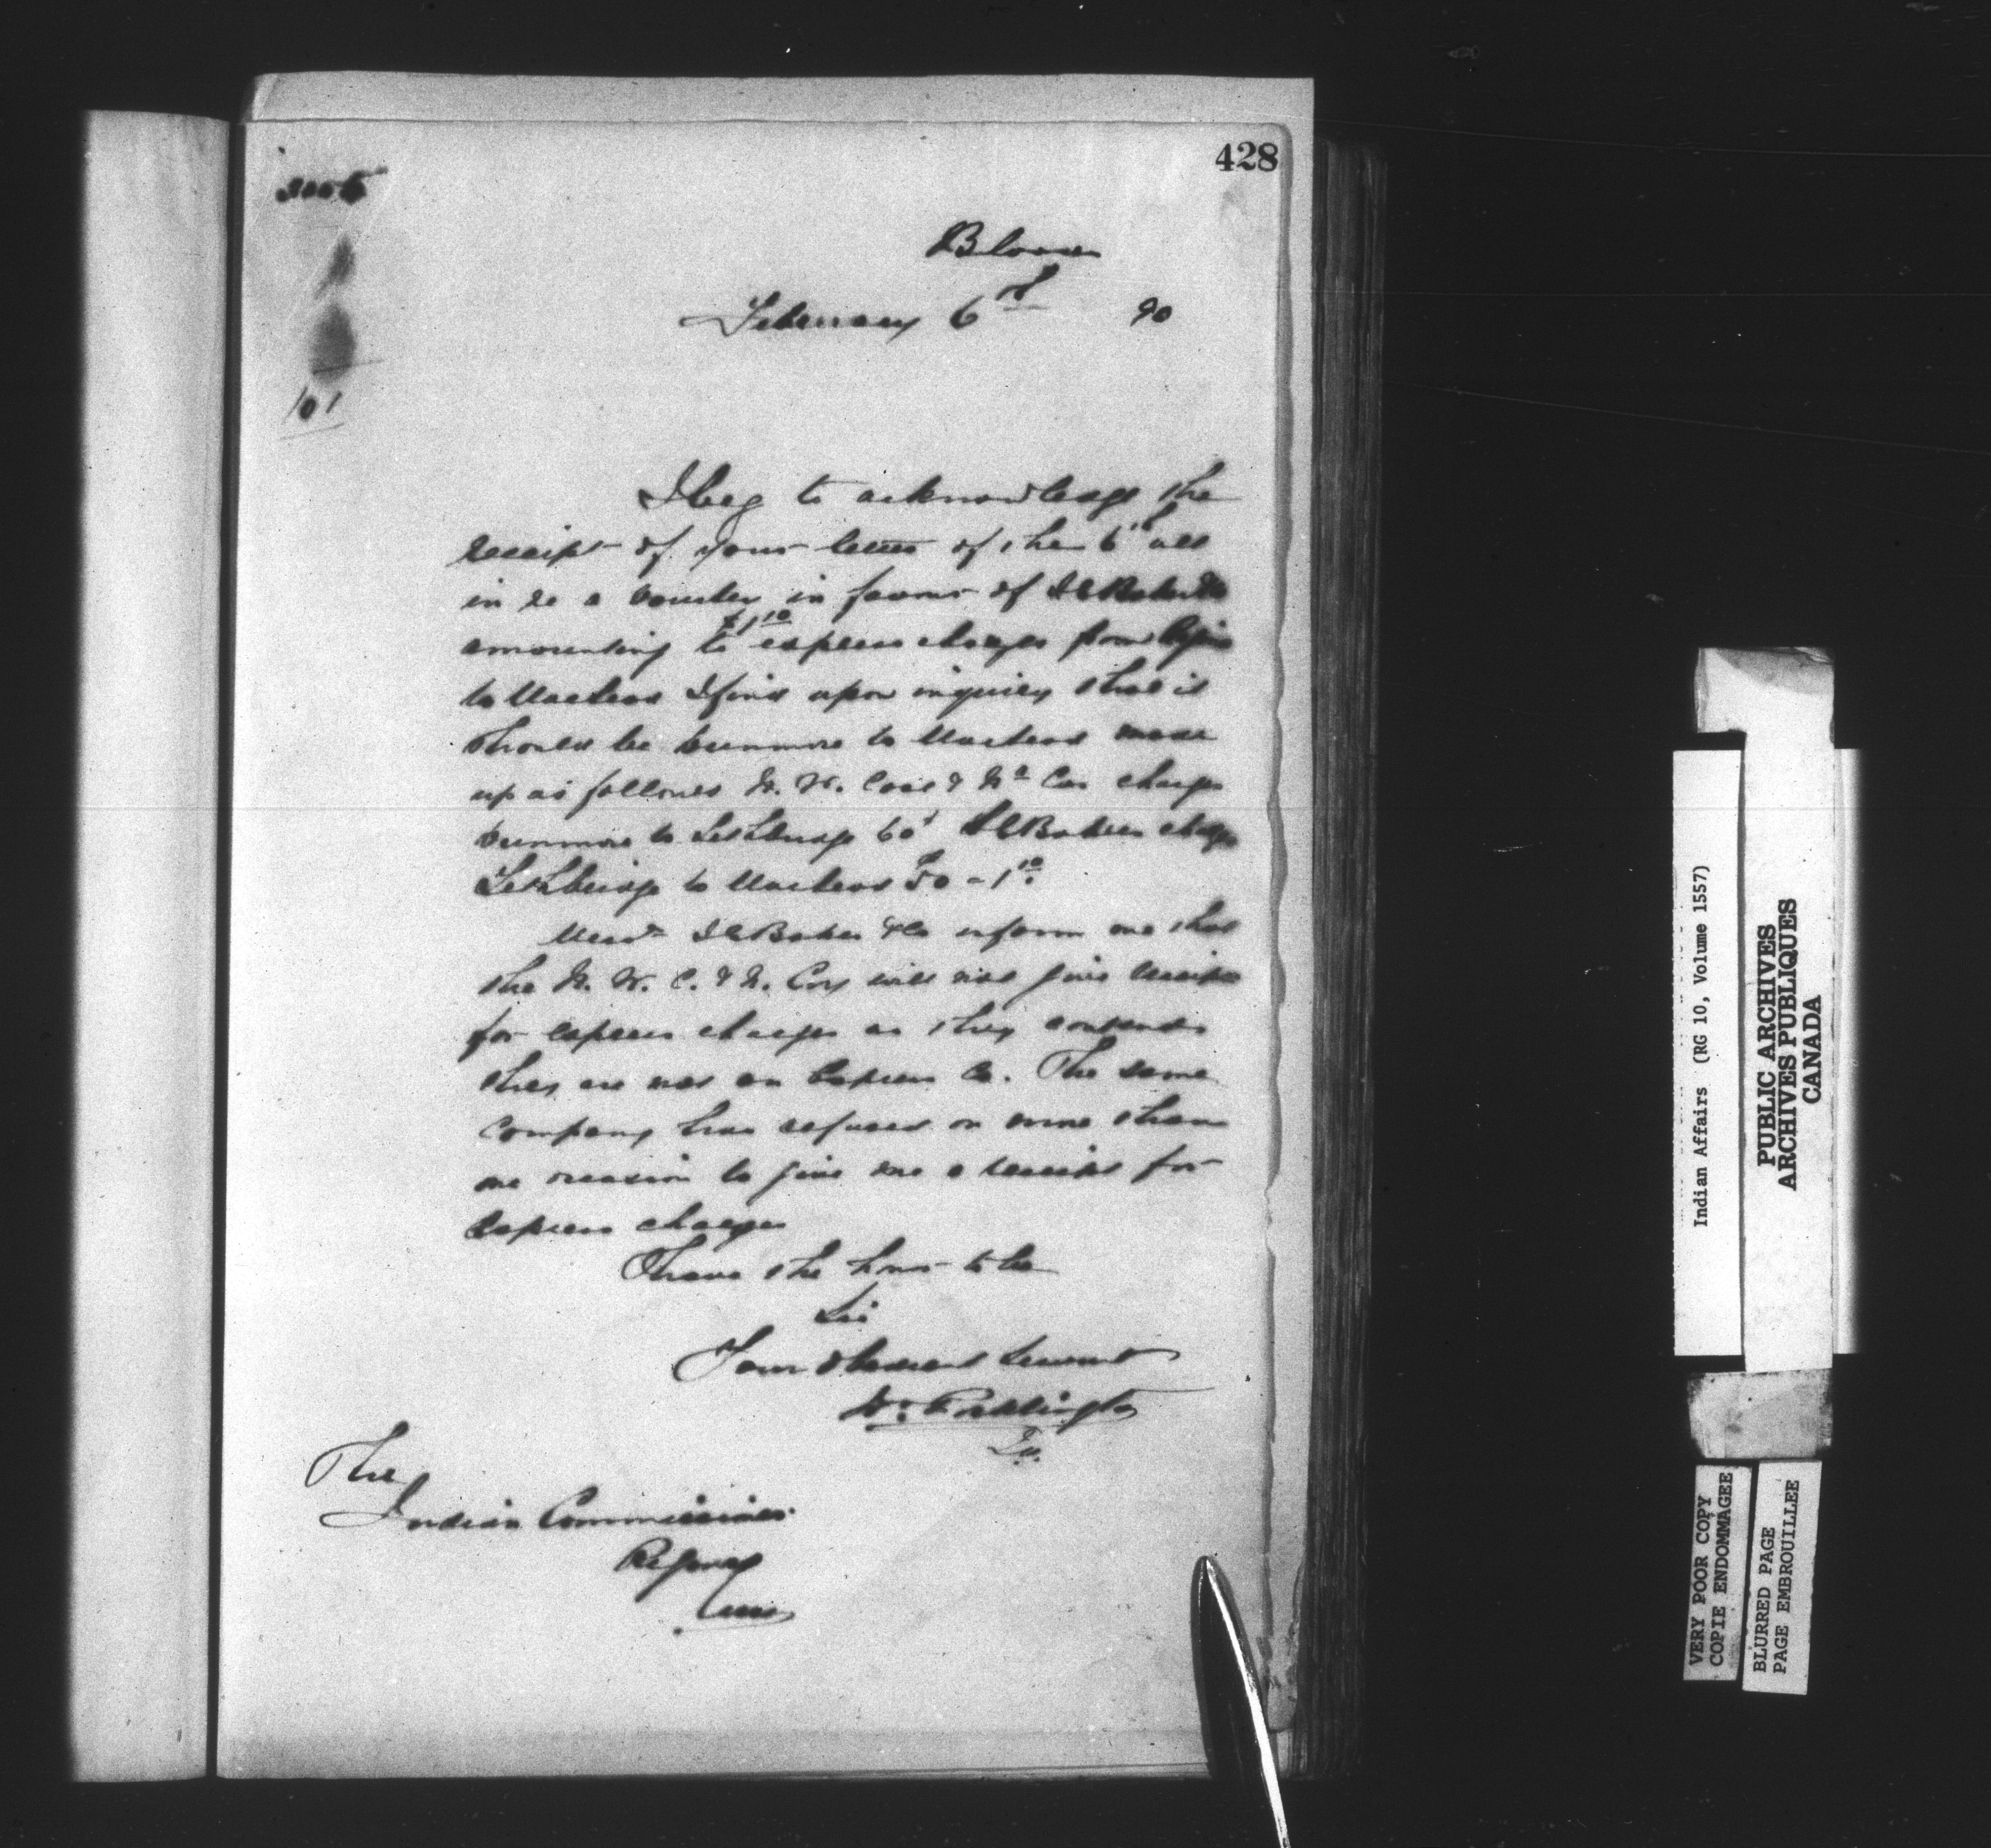 428
101
Blood
February 6th 90
I beg to acknowledge the
receipt of your letter of the 6th ult
in re a voucher in favour of I G Baker & Co
amounting to $1.10 express charges from Regina
to Macleod I find upon inquiry that it
should be Dunmore to Macleod made
up as follows N. W. Coal & N. Cos charge
Dunmore to Lethbridge 60 I G Bakers charge
Lethbridge to Macleod 50 - 1.10
Messrs I G Baker & Co inform me that
the N. W. C. & N. Coy will not give receipts
for express charges as they contend
they are not an Express Co. The same
Company has refused on more than
one occasion to give me a receipt for
Express charges
I have the honor to be
Sir
Your obedient Servant
Wm Pocklington
The
Indian Commissioner
Regina
Assa
Indian Affairs (RG 10, Volume 1557)
PUBLIC ARCHIVES
ARCHIVES PUBLIQUES
CANADA
VERY POOR COPY
COPIE ENDOMMAGEE
BLURRED PAGE
PAGE EMBROUILLEE